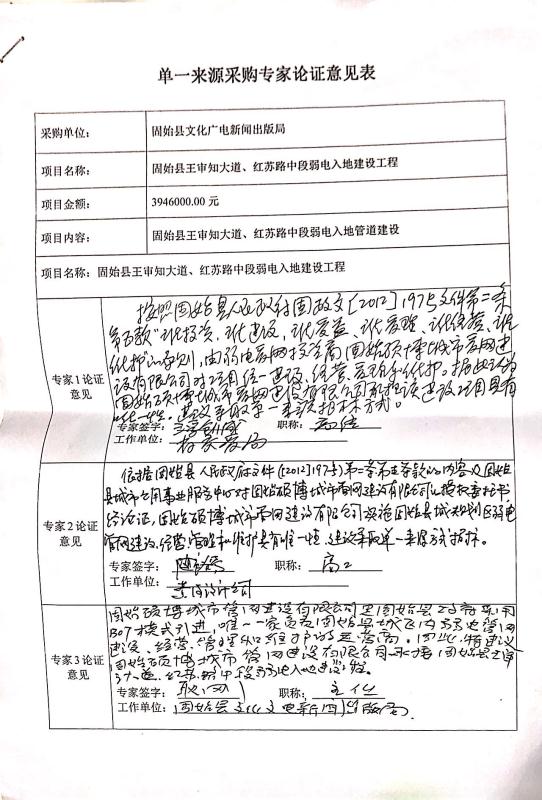 单一来源采购专家论证意见表
采购单位: 固始县文化广电新闻出版局
项目名称: 固始县王审知大道、红苏路中段弱电入地建设工程
项目金额: 3946000.00 元
项目内容: 固始县王审知大道、红苏路中段弱电入地管道建设
项目名称: 固始县王审知大道、红苏路中段弱电入地建设工程
专家 1 论证意见
按照固始县人民政府固政文[2012]197号文件第二条
固始硕博城市管网建
设有限公司对项目统一建设、经营、管理和维护。
固始硕博城市管网建设有限公司承担该建设项目具有
唯一性。建议采取单一来源招标方式。
专家签字: 职称: 高经
工作单位:
专家 2 论证意见
依据固始县人民政府文件([2012]197号)第二条第五款的内容及固始
县城市公用事业服务中心对固始硕博城市管网建设有限公司的授权委托书
经论证,固始硕博城市管网建设有限公司实施固始县城规划区弱电
管网建设、经营、管理和维护具有唯一性,建议采取单一来源方式招标。
专家签字: 职称: 高工
工作单位:
专家 3 论证意见
固始硕博城市管网建设有限公司是固始县政府采用
BOT模式引进,唯一一家负责固始县城区内弱电管网
建设、经营、管理和维护的运营商。因此,特建议
固始硕博城市管网建设有限公司来承担固始县王审
知大道、红苏路中段弱电入地建设工程。
专家签字: 职称: 主任
工作单位: 固始县文化广电新闻出版局